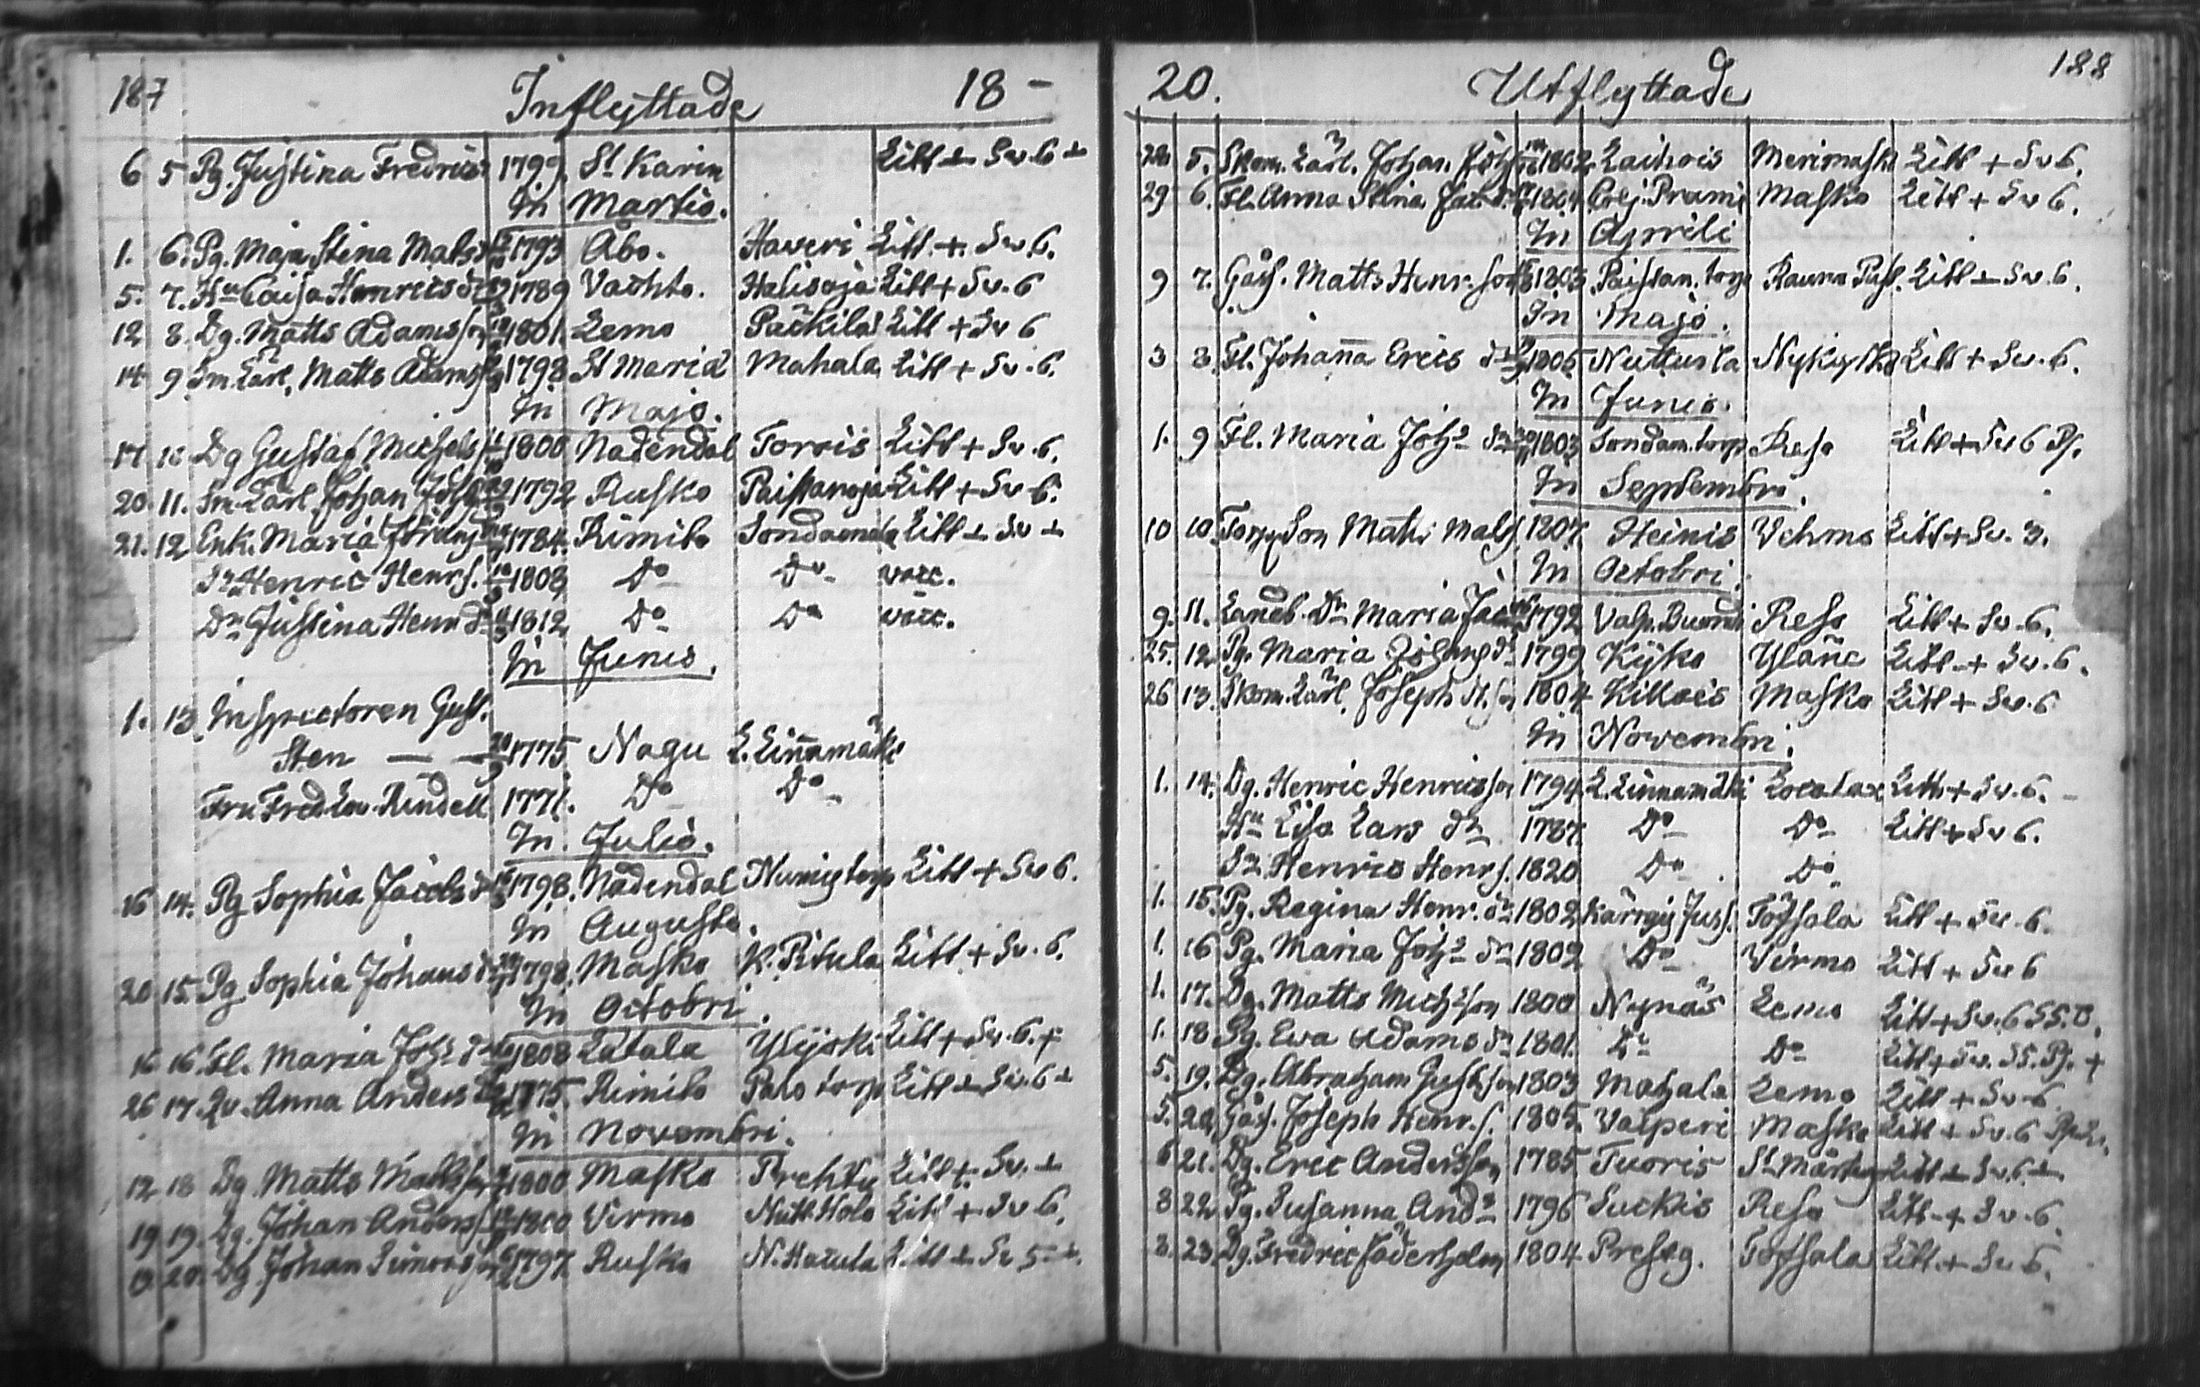 187 Inflyttade 18 –
6 5 Pg. Justina Fredrics 1799 St Karin Litt Sv. 6
In Martio.
1. 6. Pg. Maja Stina Mats 1793 Åbo. Haveri Litt + Sv. 6.
5. 7. Hu Caisa Henrics dr 1789 Vachto. Halisoja Litt + Sv. 6
12 8. Dg. Matts Adamsson 1801. Lemo Päckilä Litt + Sv 6
14 9. Sm. Lärl. Matts Adamss 1798 St Mariä Mahala Litt + Sv. 6.
In Majo.
17 10 Dg Gustaf Michels 1800 Nadendal Torois Litt + Sv. 6.
20. 11. Sm. Lärl. Johan 1792 Rusko Paistanoja Litt + Sv 6.
21. 12 Enk. Maria 1784. Rimito Litt Sv
Sn Henric Henrs. 1808 Do Do vacc.
Dr Justina Henr dr 1812 Do Do vacc.
In Junio.
1. 13. Inspectoren Gust.
Sten — — 1775 Nagu L. Linnamäki
Fru Fred. Lov. Rindell 1771. Do Do
In Julio.
16 14. Pg Sophia Jacobs dr 1798. Nådendal torp Litt + Sv 6.
In Augusto.
20 15. Pg. Sophia Johans dr 1798. Masko K. Pitula Litt + Sv. 6.
In Octobri.
16 16. Fl. Maria Joh: dr 1808 Letala Ylijoki Litt + Sv. 6. +
26 17. Qv. Anna Anders 1775. Rimito Palo torp Litt Sv. 6
In Novembri.
12 18 Dg. Matts Mattss 1800 Masko Prehty Litt +. Sv.
19 19. Dg. Johan Anders 1800 Virmo Nutt. Holo Litt + Sv 6.
19 20. Dg. Johan Simonss 1797 Rusko N. Haiula Litt Sv 5
20. Utflyttade 188
28 5. Skom. Lärl. Johan 1802 Laihois Merimasku Litt + Sv 6.
29 6. Fl. Anna Stina Jac. 1804 Masko Litt + Sv 6.
In Aprili
9 7. Gåss. Matts Henr. son 1803 Paistan. torp Rauma Litt Sv 6.
In Majo.
3 8. Fl. Johanna Erics dr 1805 Nuttusta Nykyrka Litt + Sv. 6.
In Junio.
1. 9 Fl. Maria Joh: dr 1803 Sondam. torp Reso Litt + Sv 6 Ps.
In Septembri.
10 10. Torp Son Matts Mats. 1807. Heinis Vehmo Litt + Sv. 3.
In Octobri.
9. 11. Landb. Dr Maria Jac. 1792 Valp. Reso Litt + Sv. 6.
25. 12 Pg. Maria Johans dr 1799 Kyko Yläne Litt + Sv. 6.
26 13. Skom. Lärl. Joseph 1804 Killois Masko Litt + Sv. 6
In Novembri.
1. 14. Dg. Henric Henricsson 1794 L. Linnamäki Localax Litt + Sv. 6.
Hu Lisa Lars dr 1787. Do Do Litt + Sv 6.
Sn Henric Henrs. 1820 Do Do
1. 15. Pg. Regina Henr. dr 1802 Juss. Töfsala Litt + Sv. 6.
1. 16 Pg. Maria Joh: dr 1802 Do Virmo Litt + Sv 6
1. 17. Dg. Matts Mich:son 1800 Nynäs Lemo Litt + Sv. 6
1. 18 Pg. Eva Adams dr 1801. Do Do Litt + Sv.
5. 19. Dg. Abraham Gustsson 1803 Mahala Lemo Litt + Sv 6
5. 20. Gåss. Joseph Henr. s. 1805. Valperi Masko Litt + Sv. 6
6 21. Dg. Eric Andersson 1785 Tuoris St Mårtens Litt Sv. 6
8 22 Pg. Susanna And: 1796 Suckis Reso Litt + Sv. 6
8. 23. Dg. Fredric Söderholm 1804 Prestg. Töfsala Litt + Sv 6.